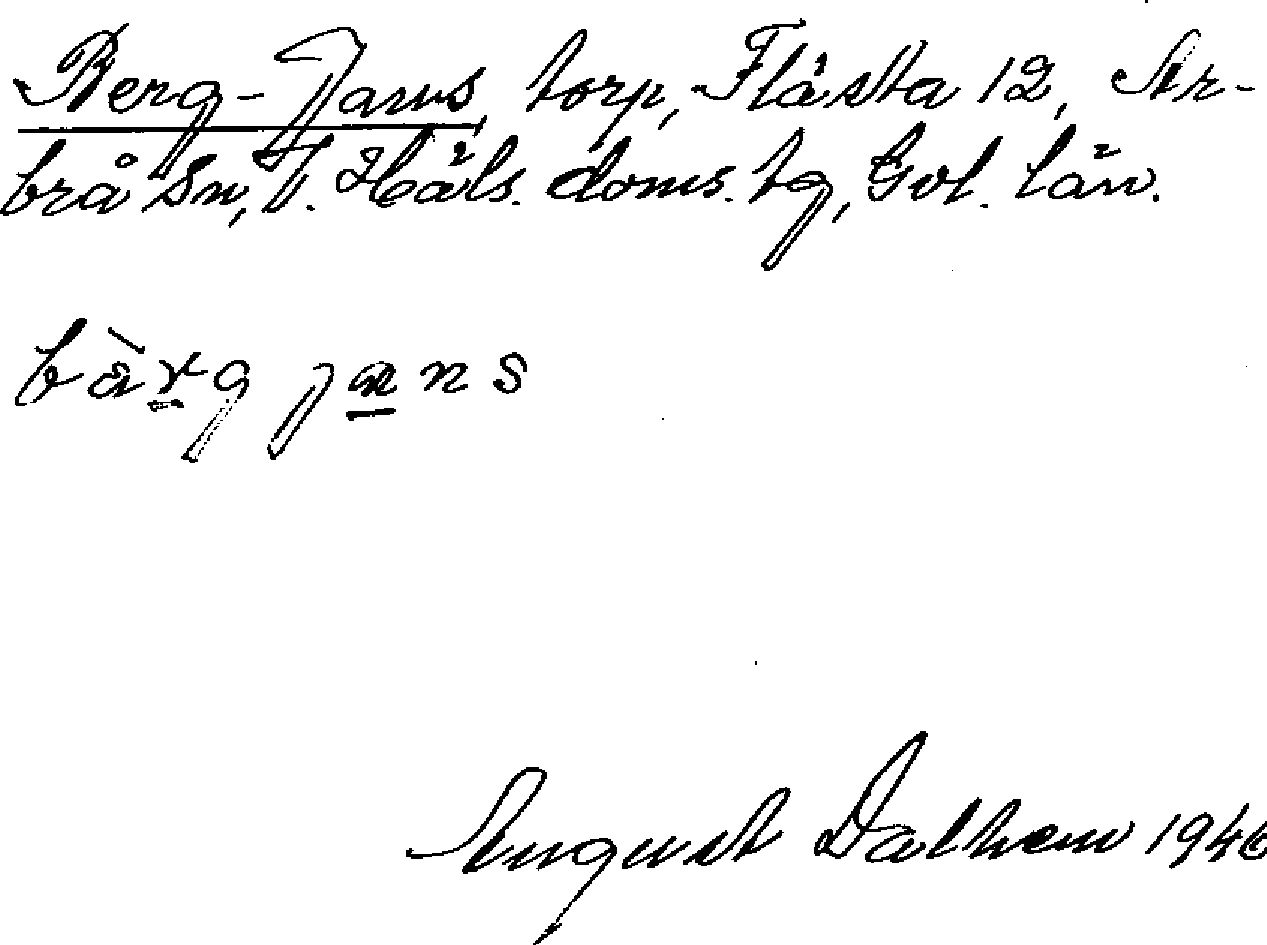 Berg-Jans, torp, Flästa 12, Ar-
brå sn, V. Häls. doms. tg, Gvl. län.
bä̀rg jans
August Dalhem 1946